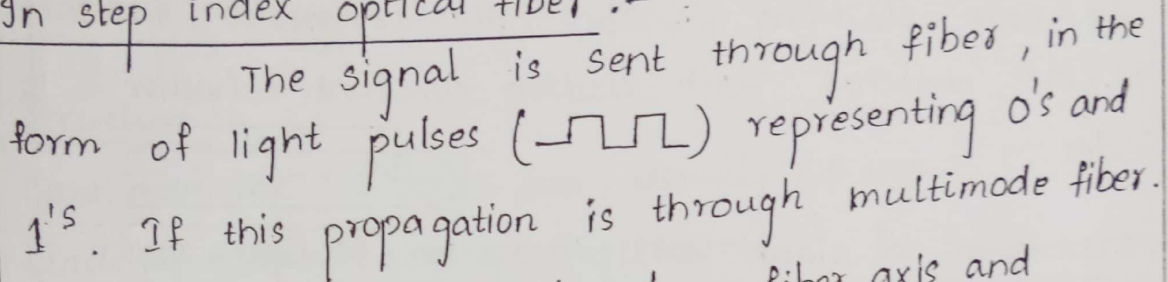 In step index optical fiber :-
The signal is sent through fiber, in the
form of light pulses ( ) representing 0's and
1's. If this propagation is through multimode fiber.
fiber axis and